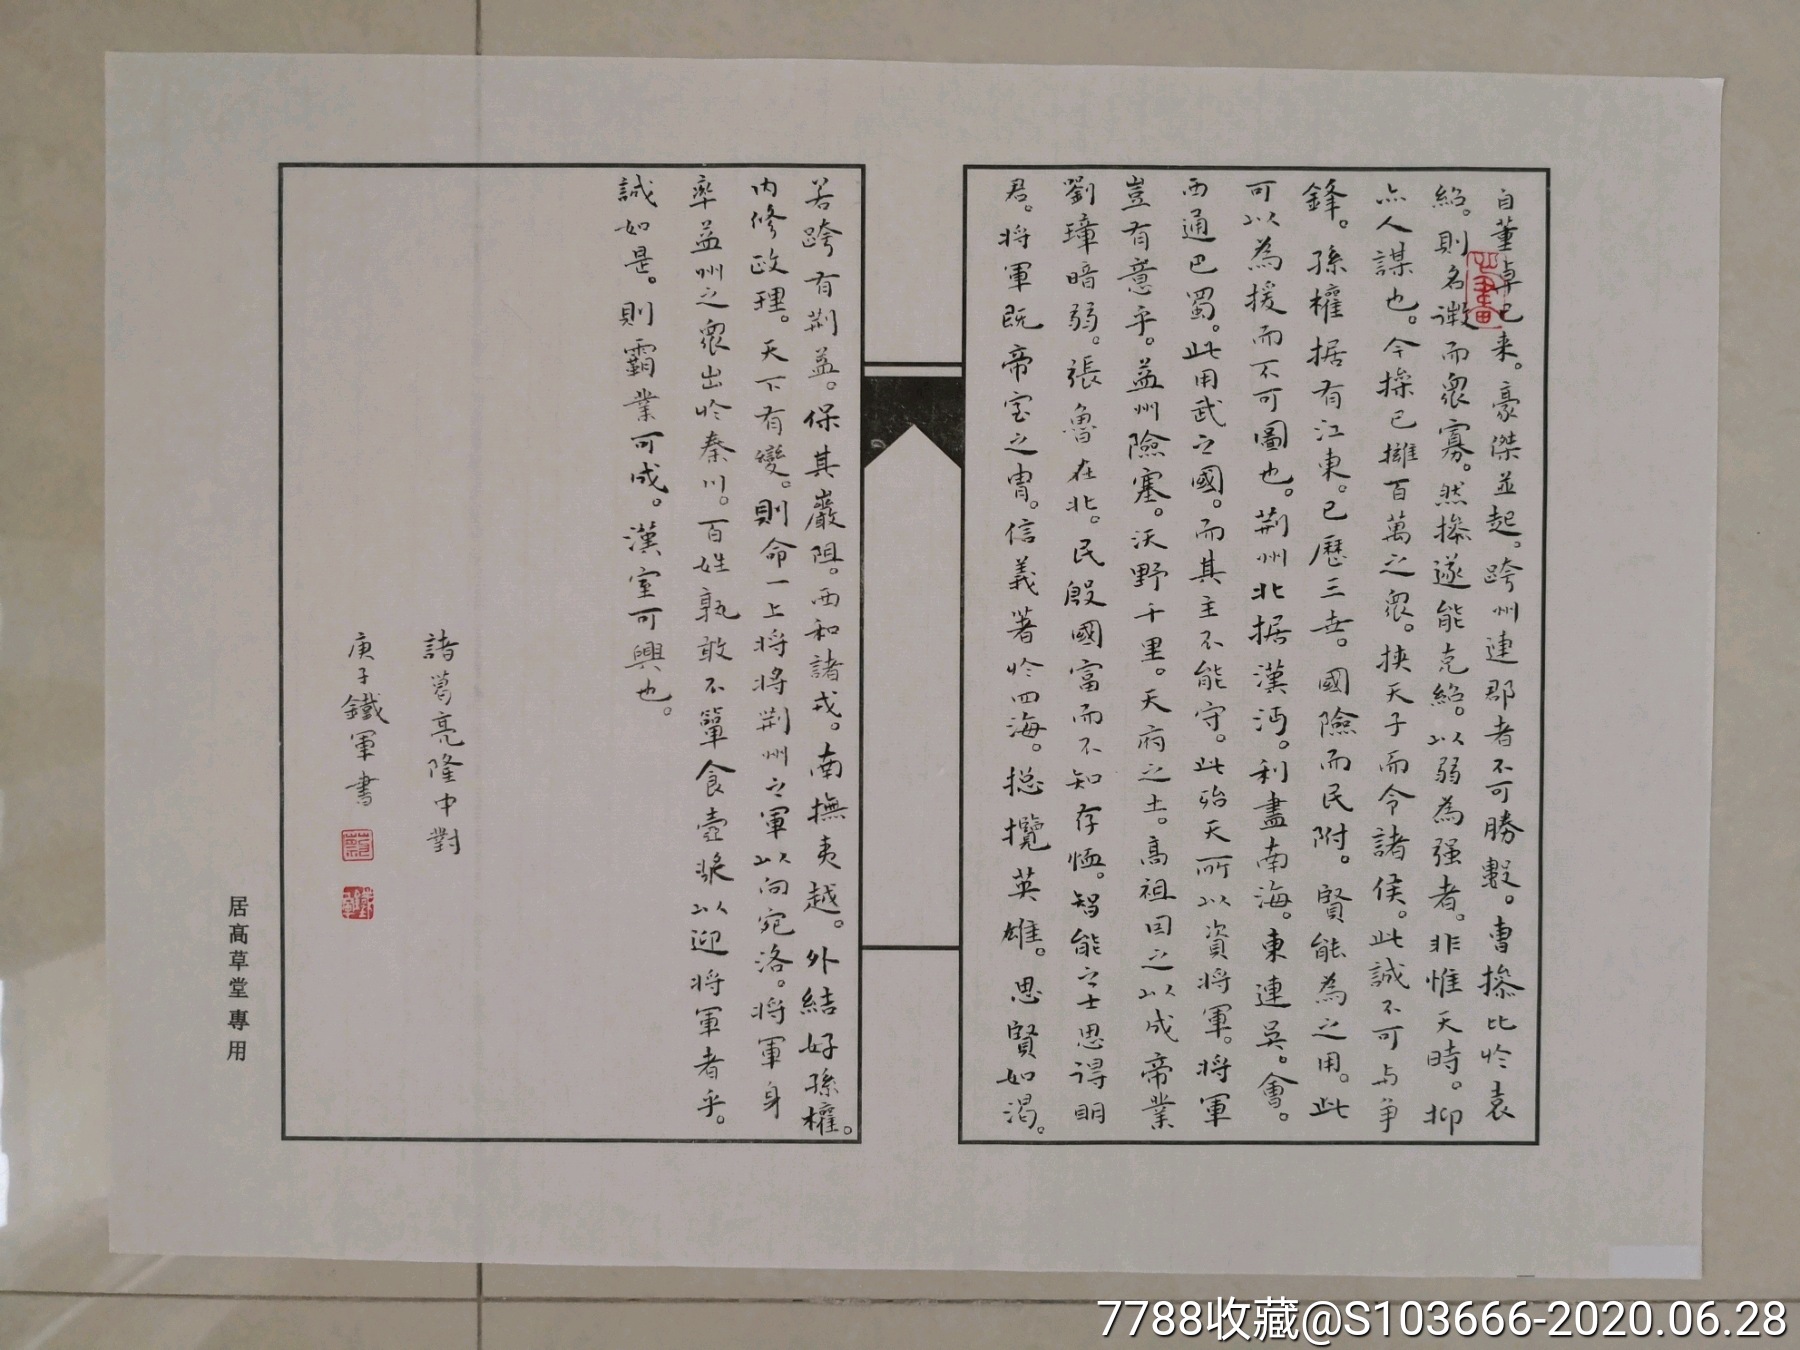 自董卓已来。豪傑並起。跨州連郡者不可勝數。曹操比於袁
紹。則名微而眾寡。然操遂能克紹。以弱為强者。非惟天時。抑
亦人謀也。今操已擁百萬之眾。挟天子而令諸侯。此誠不可与争
鋒。孫權据有江東。已歷三世。國險而民附。賢能為之用。此
可以為援而不可圖也。荆州北据漢沔。利盡南海。東連吴。會。
西通巴蜀。此用武之國。而其主不能守。此殆天所以資将軍。将軍
豈有意乎。益州險塞。沃野千里。天府之土。高祖因之以成帝業
劉璋暗弱。張魯在北。民殷國富而不知存恤。智能之士思得明
君。将軍既帝室之胄。信義著於四海。揔攬英雄。思賢如渴。
若跨有荆益。保其巖阻。西和諸戎。南撫夷越。外結好孫權。
内修政理。天下有變。則命一上将将荆州之軍以向宛洛。将軍身
率益州之眾出於秦川。百姓孰敢不簞食壺漿以迎将軍者乎。
誠如是。則霸業可成。漢室可興也。
諸葛亮隆中對
庚子鐵軍書
居高草堂專用
7788收藏@S103666-2020.06.28